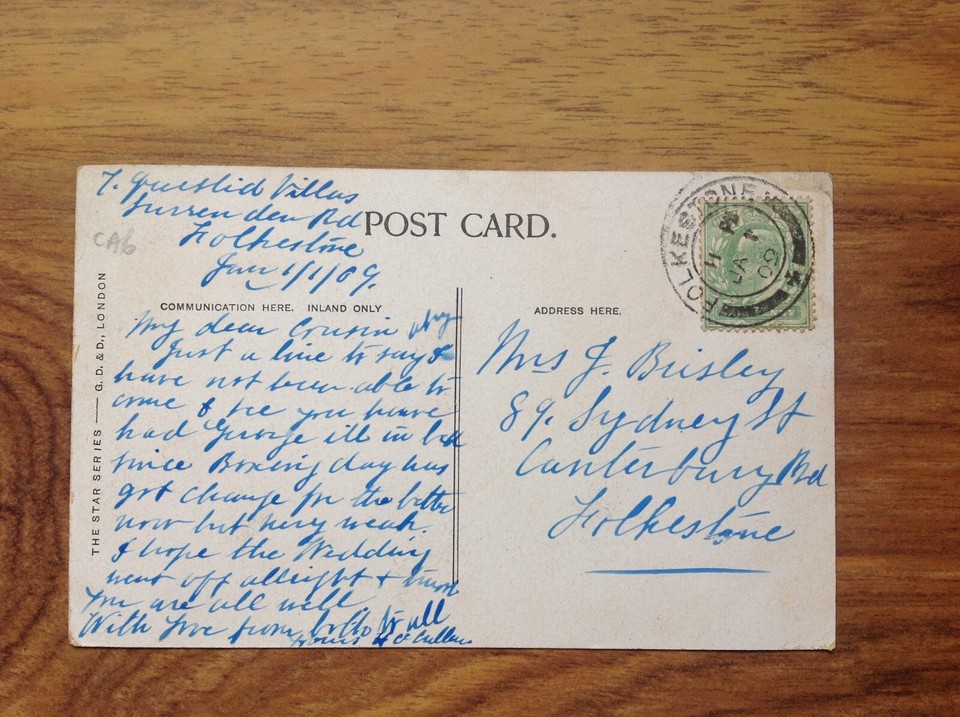 7. Villas
Surrenden Rd
Folkestone
Jan 1/1/09.
CA6
POST CARD.
FOLKESTONE
JA 1
09
THE STAR SERIES — G. D. & D., LONDON
COMMUNICATION HERE. INLAND ONLY
My dear Cousin
Just a line to say I
have not been able to
come & see you have
had George ill in bed
since Boxing day has
got change for the better
now but very weak.
I hope the Wedding
went off allright & trust
you are all well
With love from both to all
ADDRESS HERE.
Mrs J. Brisley
89. Sydney St
Canterbury Rd
Folkestone